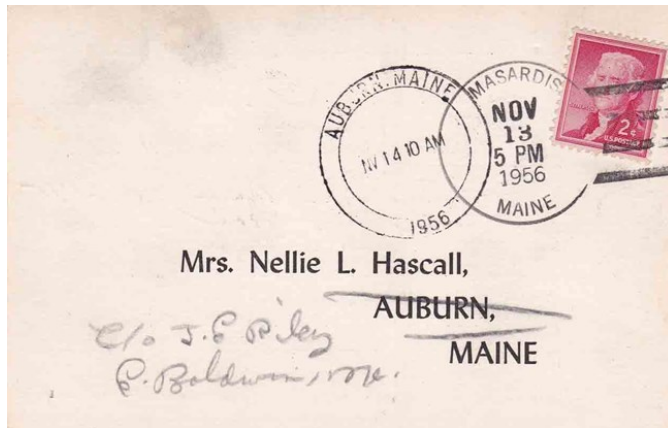 AUBURN, MAINE
NV 14 10 AM
1956
MASARDIS
NOV
13
5 PM
1956
MAINE
2¢
U.S. POSTAGE
Mrs. Nellie L. Hascall,
AUBURN,
MAINE
c/o J. E. Riley
E. Baldwin, Me.